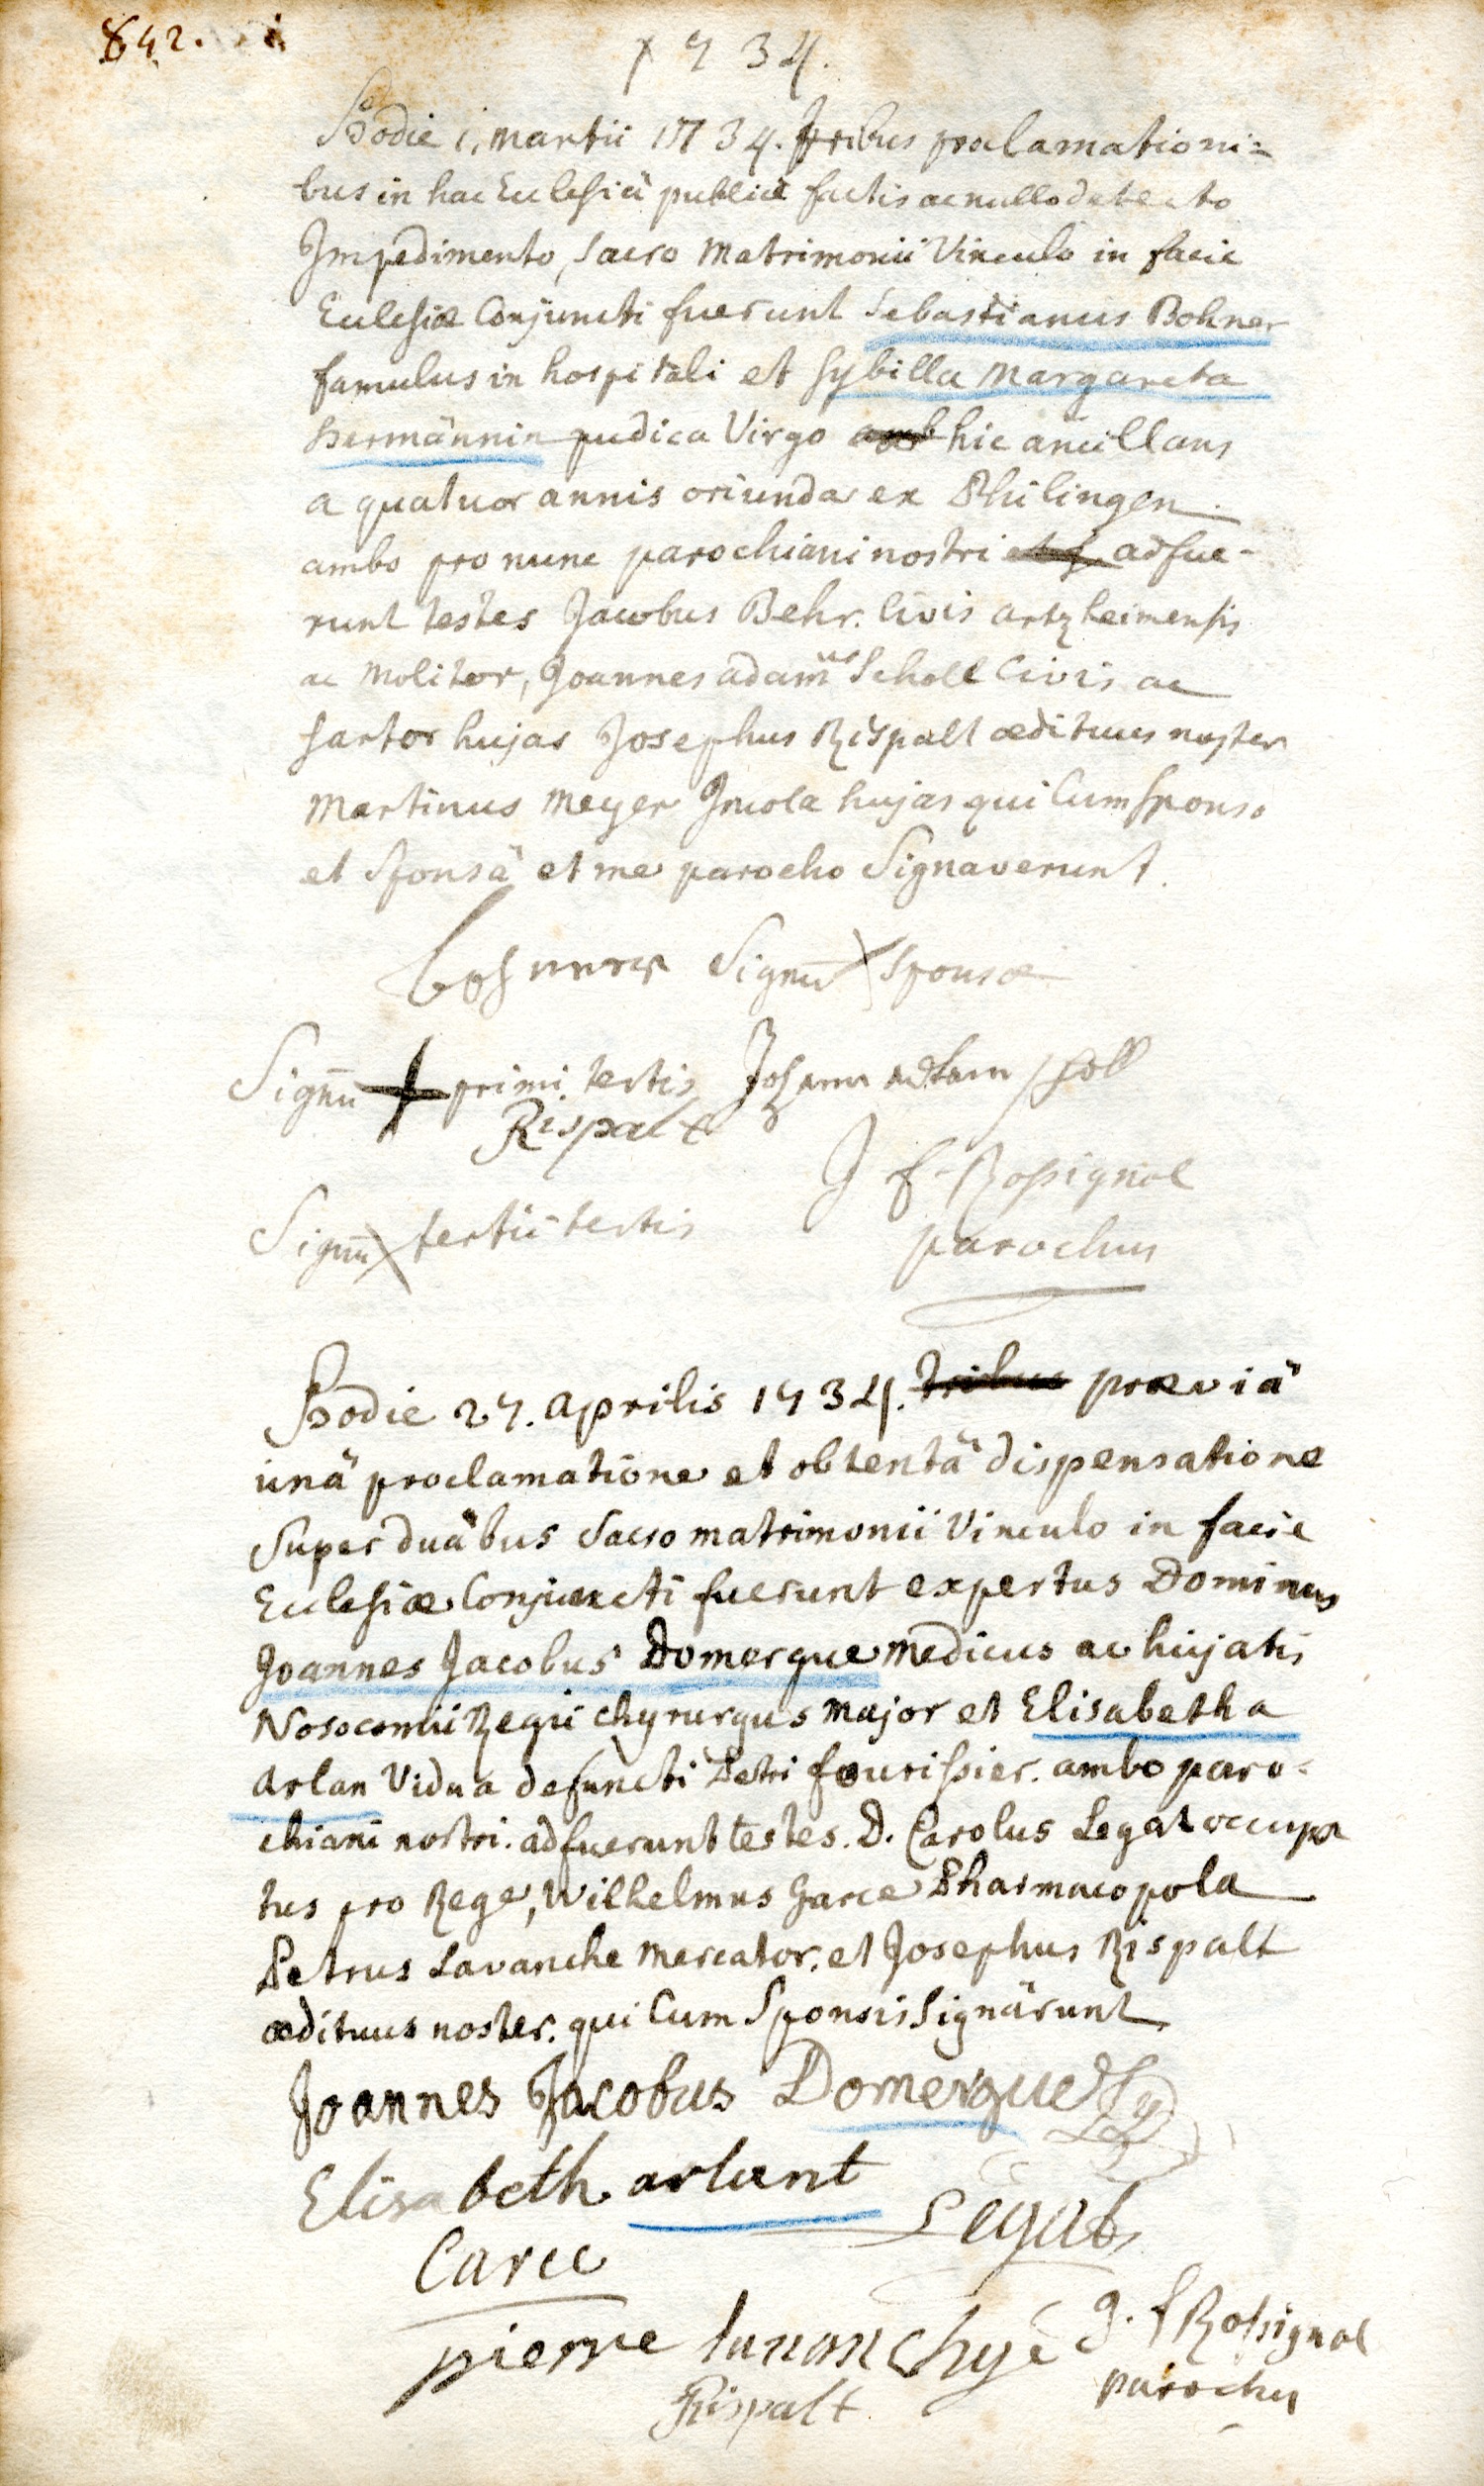 842.
1734.
Hodie 1. martii 1734. tribus proclamationi=
bus in hac Ecclesiâ publicè factis ac nullo detecto
Impedimento, sacro Matrimonii Vinculo in facie
Ecclesiæ Conjuncti fuerunt Sebastianus Bohner
famulus in hospitali et Sybilla Margareta
hermännin pudica Virgo hic ancillans
a quatuor annis oriunda ex Philingen
ambo pro nunc parochiani nostri adfue-
runt testes Jacobus Behr. Civis artzheimensis
ac Molitor, Joannes adamus Scholl Civis ac
sartor hujas Josephus Rispalt ædituus noster
Martinus Meyer Incola hujas qui Cum sponso
et sponsâ et me parocho Signaverunt.
Bohnner Signū X sponsæ
Signū + primi testis Johann adam scholl
Rispalt
J f Rossignol
Signū X tertii testis
parochus
Hodie 27. aprilis 1734. tribus præviâ
unâ proclamatione et obtentâ dispensatione
Super duâbus Sacro matrimonii Vinculo in facie
Ecclesiæ Conjuncti fuerunt expertus Dominus
Joannes Jacobus Domergue Medicus ac hujatis
Nosocomii Regii chyrurgus major et Elisabetha
arlan Vidua defuncti Petri fourissier. ambo paro-
chiani nostri. adfuerunt testes. D. Carolus Legat occupa
tus pro Rege, Wilhelmus Garce Pharmacopola
Petrus Lavanche Mercator. et Josephus Rispalt
ædituus noster. qui Cum Sponsis Signârunt
Joannes Jacobus Domergue
Elisabeth arlant
Legat
Caree
pierre lavanchye J. f Rossignol
parochus
Rispalt